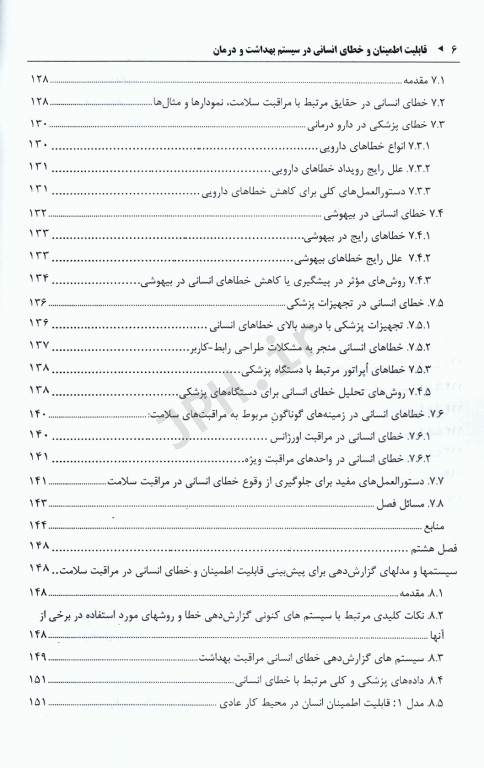 ۶ ◄ قابلیت اطمینان و خطای انسانی در سیستم بهداشت و درمان
۷.۱ مقدمه ۱۲۸
۷.۲ خطای انسانی در حقایق مرتبط با مراقبت سلامت، نمودارها و مثال‌ها ۱۲۸
۷.۳ خطای پزشکی در دارو درمانی ۱۳۰
۷.۳.۱ انواع خطاهای دارویی ۱۳۰
۷.۳.۲ علل رایج رویداد خطاهای دارویی ۱۳۱
۷.۳.۳ دستورالعمل‌های کلی برای کاهش خطاهای دارویی ۱۳۱
۷.۴ خطای انسانی در بیهوشی ۱۳۲
۷.۴.۱ خطاهای رایج در بیهوشی ۱۳۳
۷.۴.۲ علل رایج خطاهای بیهوشی ۱۳۳
۷.۴.۳ روش‌های مؤثر در پیشگیری یا کاهش خطاهای انسانی در بیهوشی ۱۳۴
۷.۵ خطای انسانی در تجهیزات پزشکی ۱۳۶
۷.۵.۱ تجهیزات پزشکی با درصد بالای خطاهای انسانی ۱۳۶
۷.۵.۲ خطاهای انسانی منجر به مشکلات طراحی رابط-کاربر ۱۳۷
۷.۵.۳ خطاهای اُپراتور مرتبط با دستگاه پزشکی ۱۳۸
۷.۴.۵ روش‌های تحلیل خطای انسانی برای دستگاه‌های پزشکی ۱۳۸
۷.۶ خطاهای انسانی در زمینه‌های گوناگونِ مربوط به مراقبت‌های سلامت: ۱۴۰
۷.۶.۱ خطای انسانی در مراقبت اورژانس ۱۴۰
۷.۶.۲ خطای انسانی در واحدهای مراقبت ویژه ۱۴۱
۷.۷ دستورالعمل‌های مفید برای جلوگیری از وقوع خطای انسانی در مراقبت سلامت ۱۴۱
۷.۸ مسائل فصل ۱۴۳
منابع ۱۴۴
فصل هشتم ۱۴۸
سیستمها و مدلهای گزارش‌دهی برای پیش‌بینی قابلیت اطمینان و خطای انسانی در مراقبت سلامت ۱۴۸
۸.۱ مقدمه ۱۴۸
۸.۲ نکات کلیدی مرتبط با سیستم های کنونی گزارش‌دهی خطا و روشهای مورد استفاده در برخی از
آنها ۱۴۸
۸.۳ سیستم های گزارش‌دهی خطای انسانی مراقبت بهداشت ۱۴۹
۸.۴ داده‌های پزشکی و کلی مرتبط با خطای انسانی ۱۵۱
۸.۵ مدل ۱: قابلیت اطمینان انسان در محیط کار عادی ۱۵۱
JPH.ir